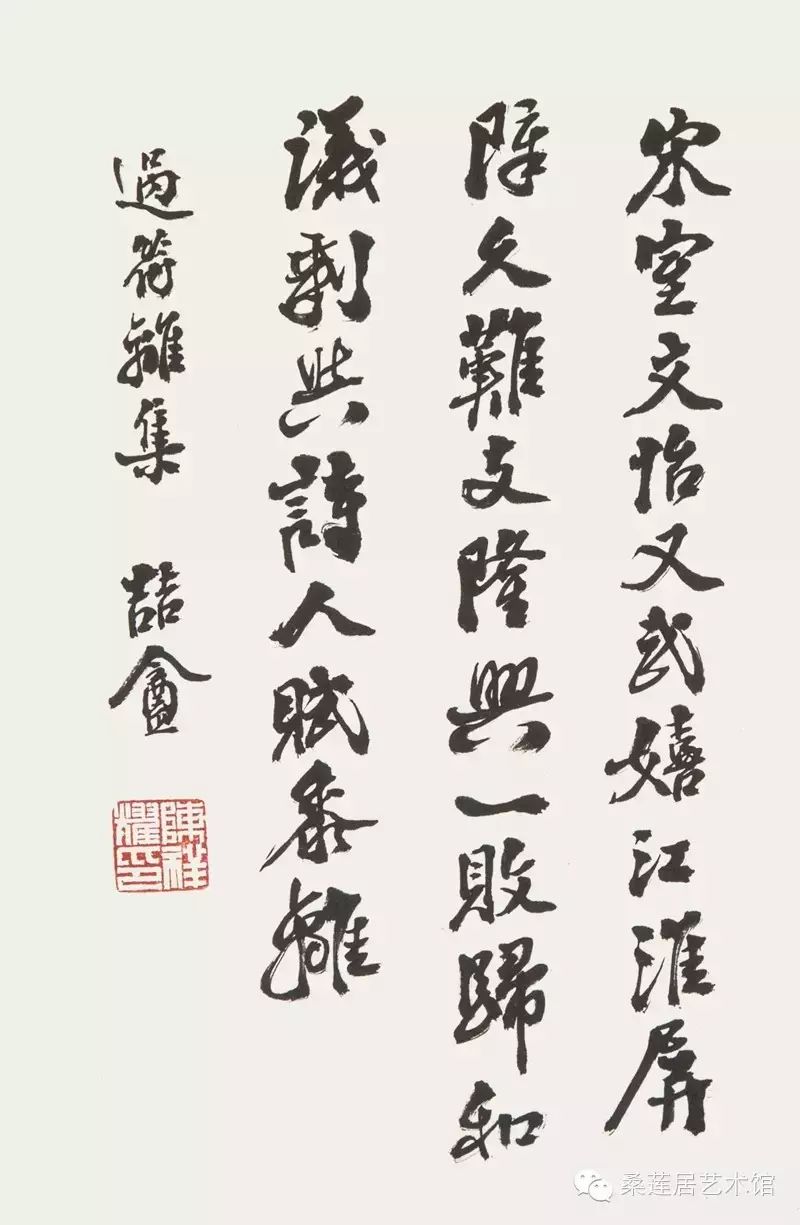 宋室文怡又武嬉江淮屏
障久難支隆興一敗歸和
議剩與詩人賦黍離
過符離集 喆盦
陳祥耀印
桑莲居艺术馆